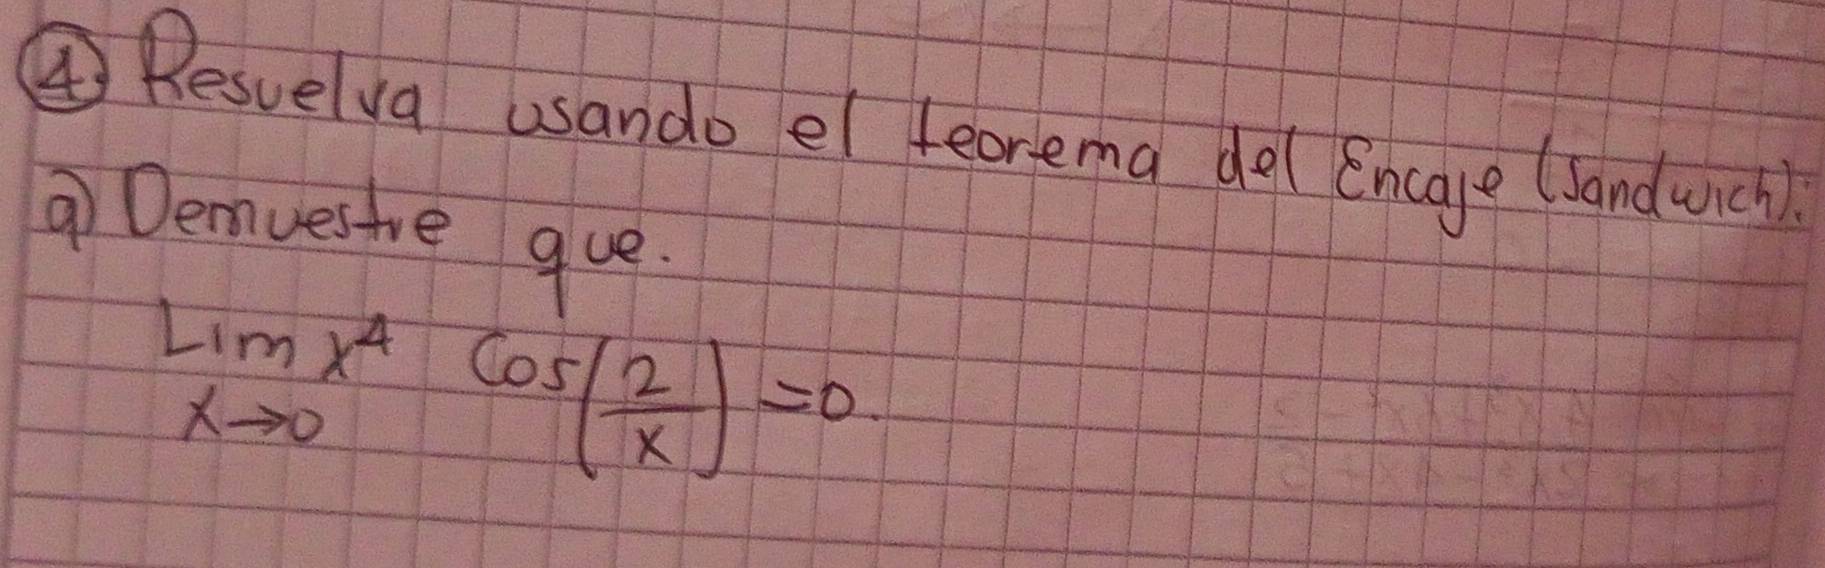 ④ Resuelva usando el teorema del Encaje (Sandwich):
a) Demuestre que.
Lim x⁴ Cos(2/x) = 0.
x→0